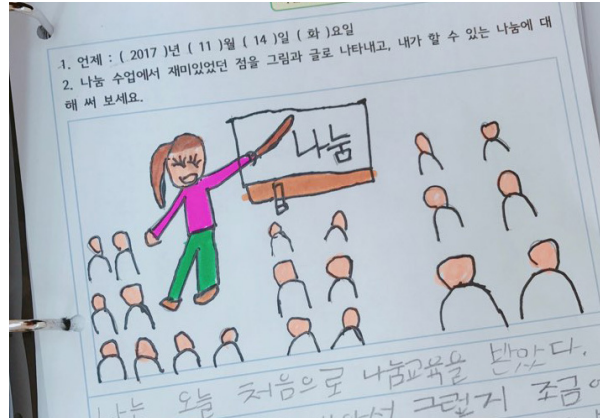 1. 언제 : ( 2017 )년 ( 11 )월 ( 14 )일 ( 화 )요일
2. 나눔 수업에서 재미있었던 점을 그림과 글로 나타내고, 내가 할 수 있는 나눔에 대
해 써 보세요.
나눔
나는 오늘 처음으로 나눔교육을 받았다.
그렇지 조금